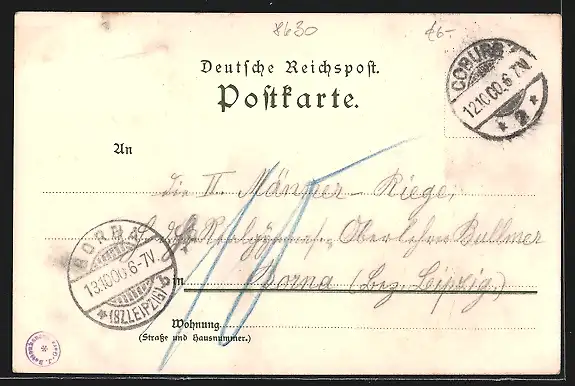 8630 €6-
Deutsche Reichspost.
Postkarte.
COBURG
12.10.00. 6-7N.
* 2 *
An
die II. Männer-Riege,
Oberlehrer Bullmer
BORNA
13.10.00. 6-7V.
* (BZ.LEIPZIG) *
in Borna (Bez. Leipzig.)
Wohnung
(Straße und Hausnummer.)